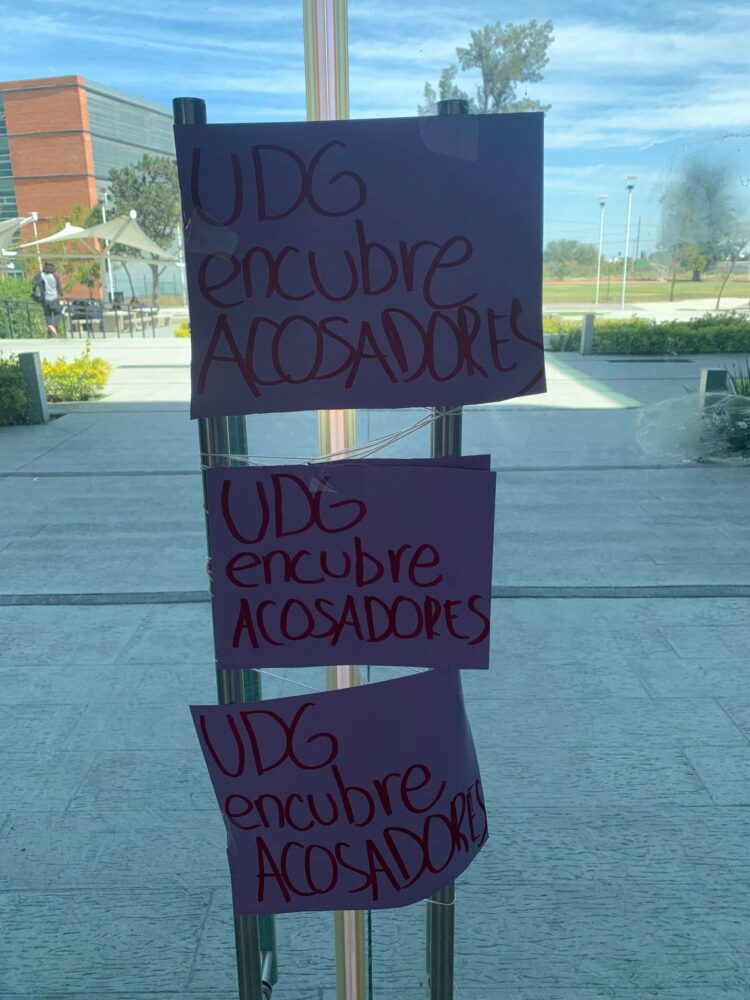 UDG
encubre
ACOSADORES
UDG
encubre
ACOSADORES
UDG
encubre
ACOSADORES